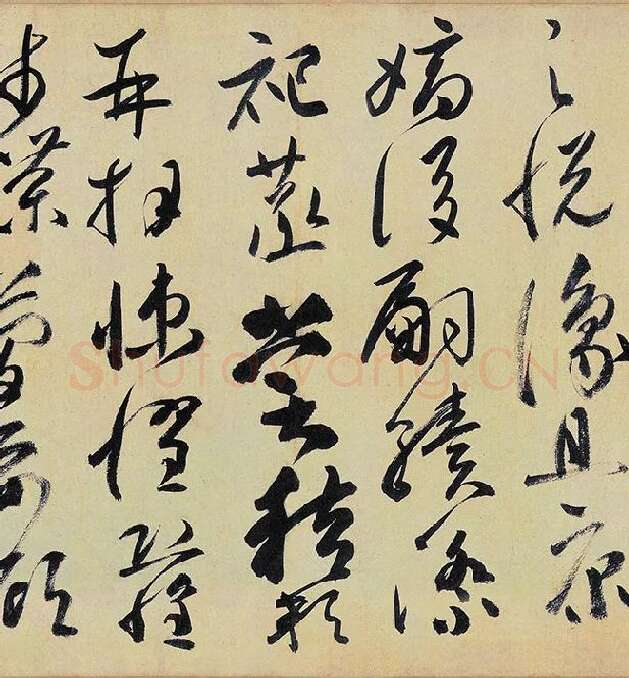 足悦豫且康
嫡後嗣續祭
祀蒸嘗稽顙
再拜悚懼恐惶
牋牒簡要顧
Shufawang.CN